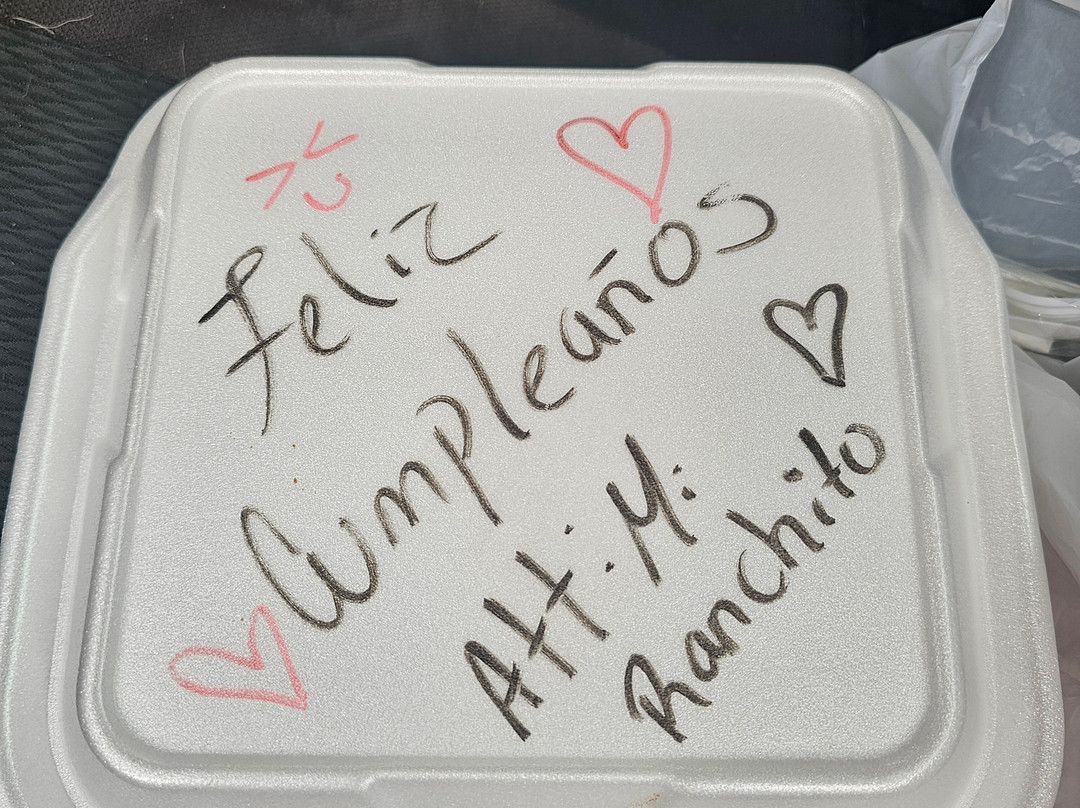 Feliz
Cumpleaños
Att: Mi
Ranchito